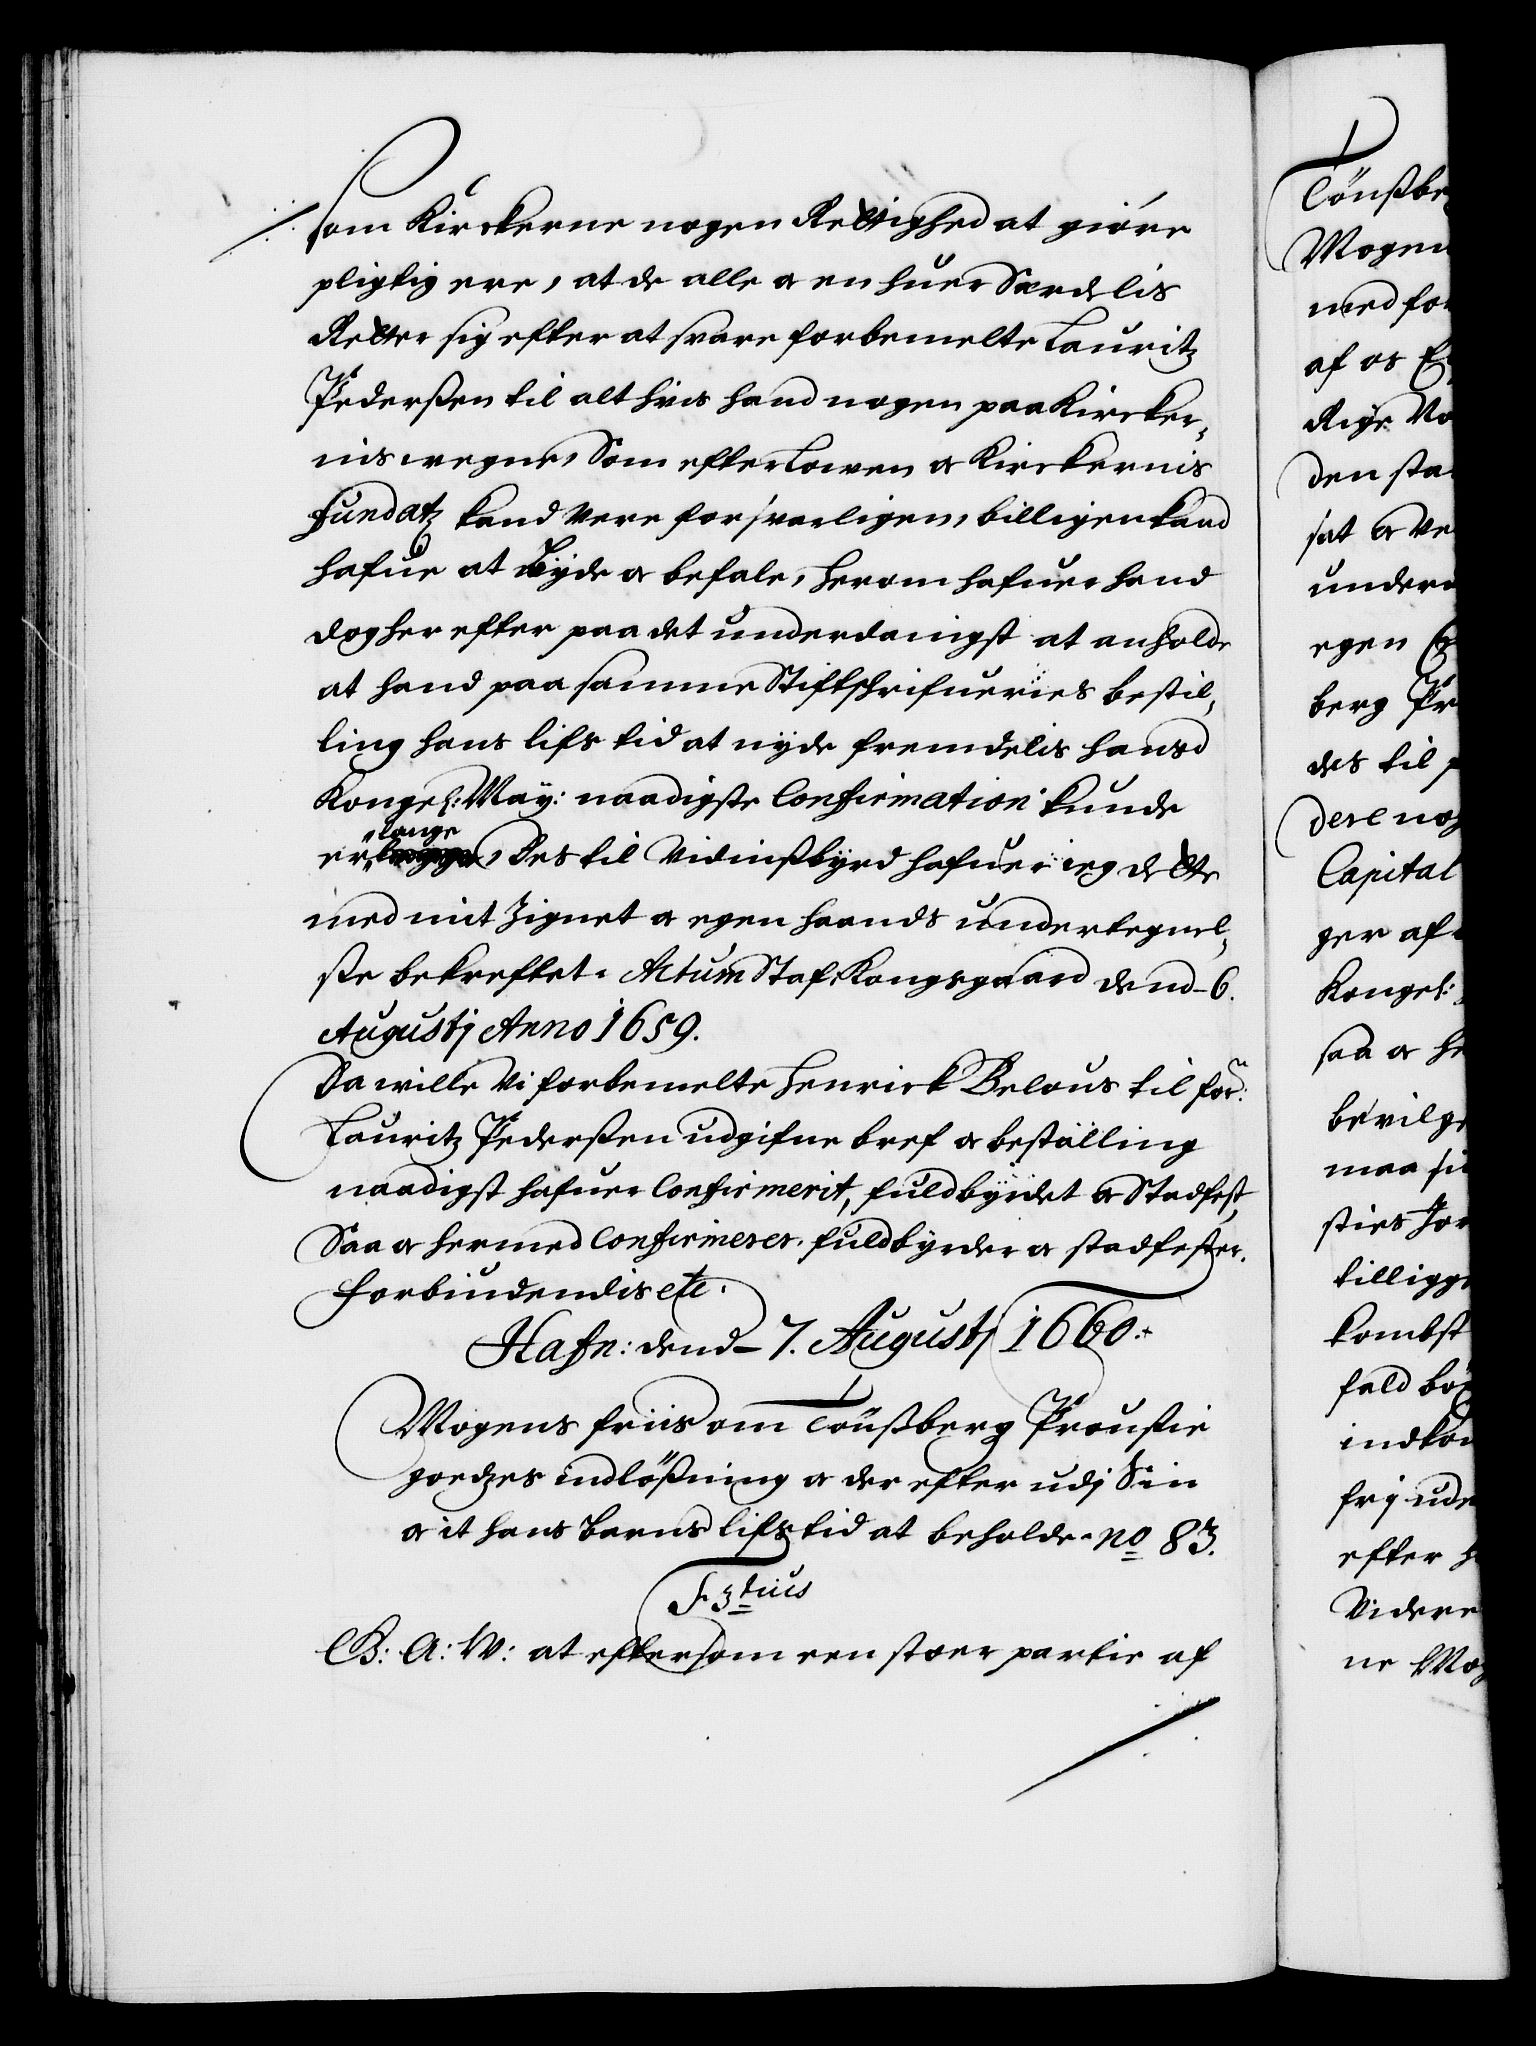 som Kirckerne nogen Rettighed at giöre
pligtig ere, at de alle og en huer Særdelis
Retter sig efter at svare forbemelte Lauritz
Pederßen til alt hvis hand nogen paa Kircker,
nis wegne, Som efter Lowen og Kirckernis
fundatz kand were forsvarligen, billigen kand
hafue at Byde og befale, herom hafuer hand
dog her efter paa det underdanigst at anholde
at hand paa samme Stiftschrifueries bestil,
ling hans lifs tid at nyde fremdelis hans
Kongel: May: naadigste Confirmation kunde
erlange, Des til Vidinßbyrd hafuer ieg dette
med mit Zignet og egen haands undertegnel,
ße bekreftet. Actum Staf: Kongsgaard dend 6.
Augustj Anno 1659.
Da wille Vi forbemelte Henrick Belous til forn:
Lauritz Pederßen udgifne bref og bestalling
naadigst hafuer Confirmerit, fuldbyrdet og Stadfest,
Saa og hermed Confirmerer, fuldbyrder og stadfester.
forbiudendis etc.
Hafn: dend 7. Augustj 1660.
Mogens friis om Tönßberg Proustie
goedzes indlößning og der efter udj Sin
og it hans Barns lifs tid at beholde. no 83.
F 3tius
G: A: W: at eftersom een stoer partie af
Tönßbe
Mogen
med for
af os
Rige
den sta
sat og ve
undere
egen
berg Pr
des til
dere nog
Capital
ger af
Kongel:
saa og he
bevilge
maa
sties
tilligge
kombst
fald
indkom
frj ude
efter
Videre
ne Mog